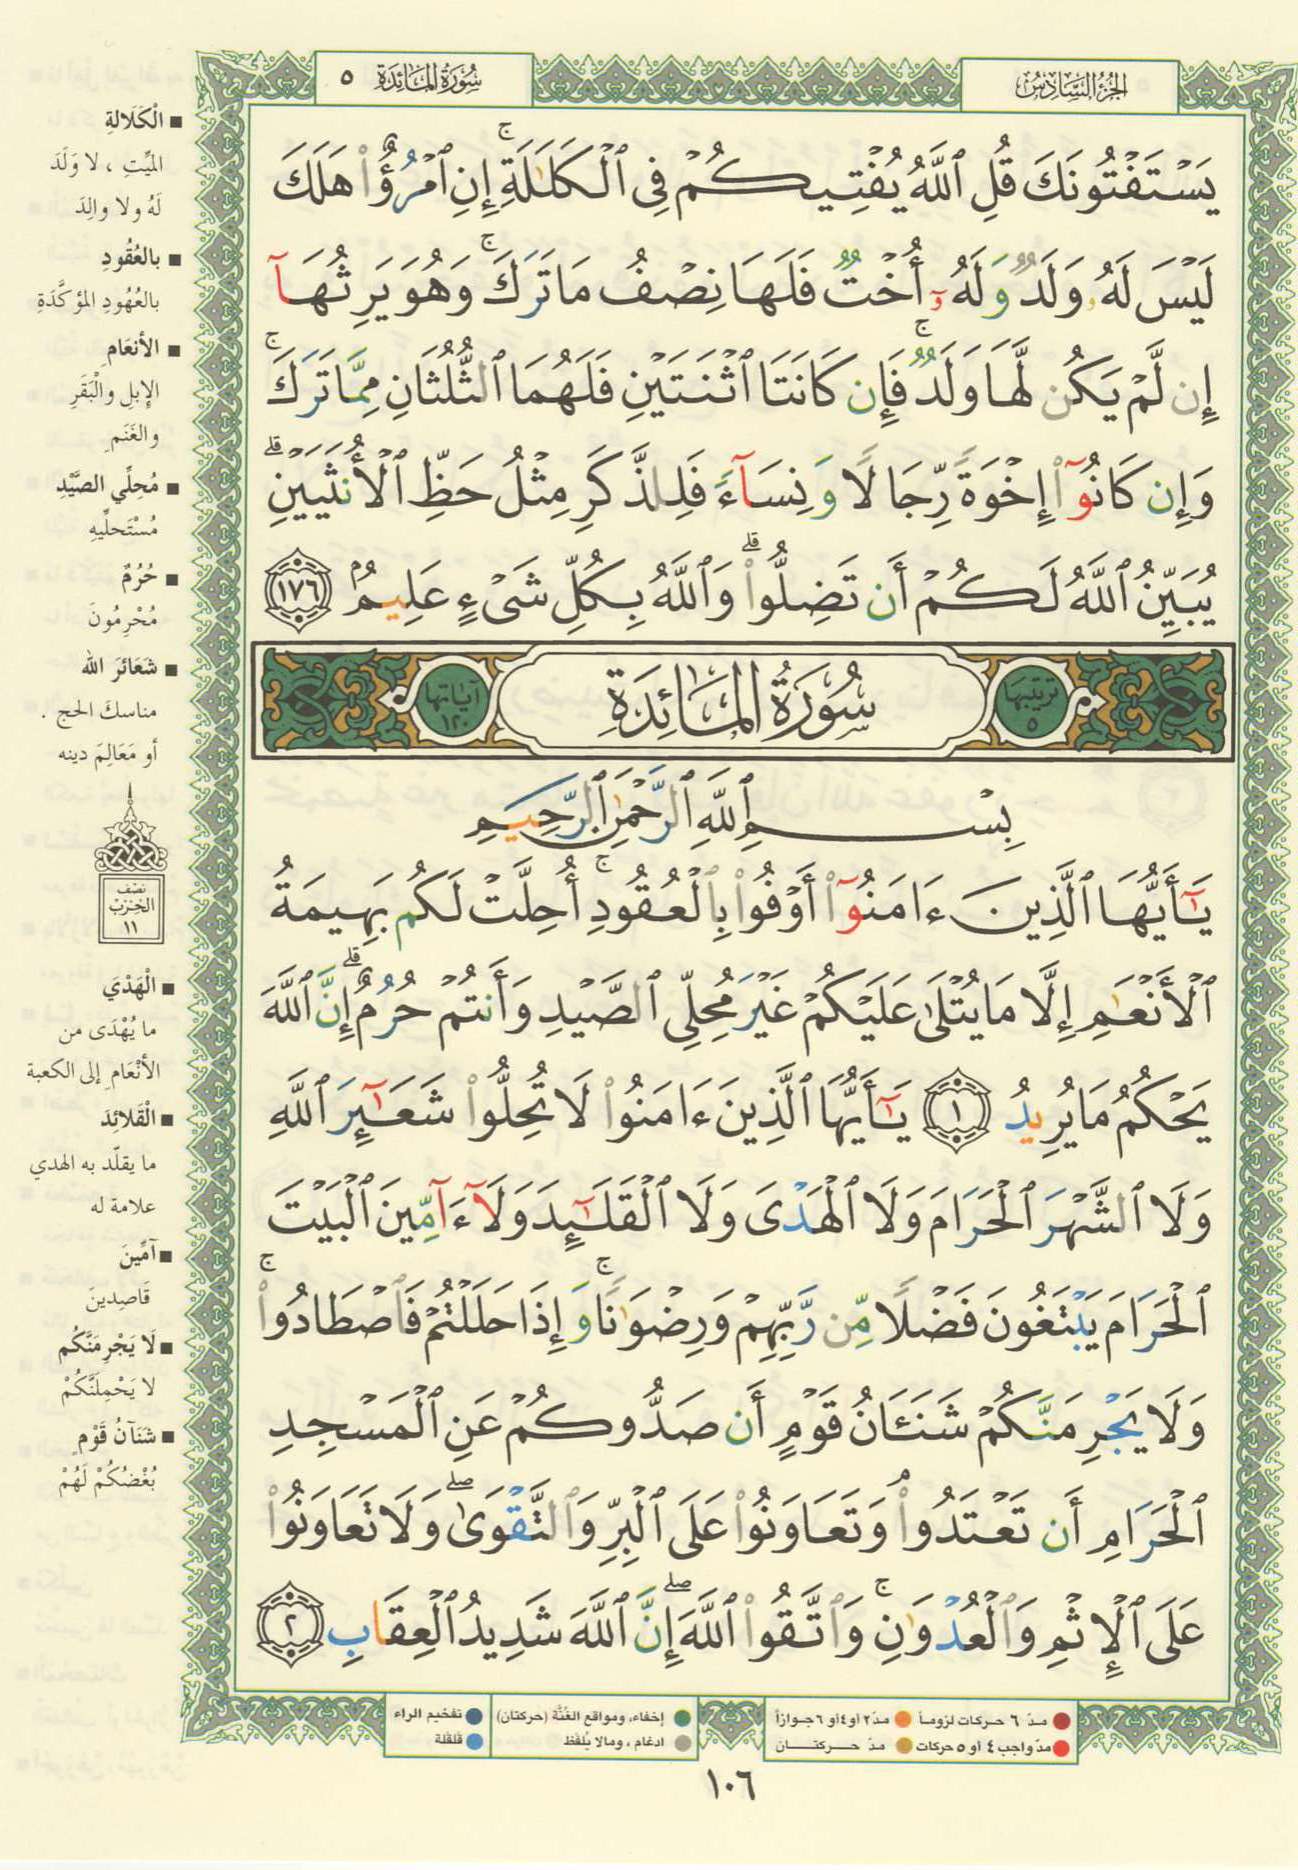 الجزء السادس
سورة المائدة ٥
يَسْتَفْتُونَكَ قُلِ ٱللَّهُ يُفْتِيكُمْ فِى ٱلْكَلَٰلَةِ ۚ إِنِ ٱمْرُؤٌا۟ هَلَكَ
لَيْسَ لَهُۥ وَلَدٌ وَلَهُۥٓ أُخْتٌ فَلَهَا نِصْفُ مَا تَرَكَ ۚ وَهُوَ يَرِثُهَآ
إِن لَّمْ يَكُن لَّهَا وَلَدٌ ۚ فَإِن كَانَتَا ٱثْنَتَيْنِ فَلَهُمَا ٱلثُّلُثَانِ مِمَّا تَرَكَ ۚ
وَإِن كَانُوٓا۟ إِخْوَةً رِّجَالًا وَنِسَآءً فَلِلذَّكَرِ مِثْلُ حَظِّ ٱلْأُنثَيَيْنِ ۗ
يُبَيِّنُ ٱللَّهُ لَكُمْ أَن تَضِلُّوا۟ ۗ وَٱللَّهُ بِكُلِّ شَىْءٍ عَلِيمٌۢ ١٧٦
ترتيبها ٥ سُورَةُ المَائِدَةِ آياتها ١٢٠
بِسْمِ ٱللَّهِ ٱلرَّحْمَٰنِ ٱلرَّحِيمِ
يَٰٓأَيُّهَا ٱلَّذِينَ ءَامَنُوٓا۟ أَوْفُوا۟ بِٱلْعُقُودِ ۚ أُحِلَّتْ لَكُم بَهِيمَةُ
ٱلْأَنْعَٰمِ إِلَّا مَا يُتْلَىٰ عَلَيْكُمْ غَيْرَ مُحِلِّى ٱلصَّيْدِ وَأَنتُمْ حُرُمٌ ۗ إِنَّ ٱللَّهَ
يَحْكُمُ مَا يُرِيدُ ١ يَٰٓأَيُّهَا ٱلَّذِينَ ءَامَنُوا۟ لَا تُحِلُّوا۟ شَعَٰٓئِرَ ٱللَّهِ
وَلَا ٱلشَّهْرَ ٱلْحَرَامَ وَلَا ٱلْهَدْىَ وَلَا ٱلْقَلَٰٓئِدَ وَلَآ ءَآمِّينَ ٱلْبَيْتَ
ٱلْحَرَامَ يَبْتَغُونَ فَضْلًا مِّن رَّبِّهِمْ وَرِضْوَٰنًا ۚ وَإِذَا حَلَلْتُمْ فَٱصْطَادُوا۟ ۚ
وَلَا يَجْرِمَنَّكُمْ شَنَـَٔانُ قَوْمٍ أَن صَدُّوكُمْ عَنِ ٱلْمَسْجِدِ
ٱلْحَرَامِ أَن تَعْتَدُوا۟ ۘ وَتَعَاوَنُوا۟ عَلَى ٱلْبِرِّ وَٱلتَّقْوَىٰ ۖ وَلَا تَعَاوَنُوا۟
عَلَى ٱلْإِثْمِ وَٱلْعُدْوَٰنِ ۚ وَٱتَّقُوا۟ ٱللَّهَ ۖ إِنَّ ٱللَّهَ شَدِيدُ ٱلْعِقَابِ ٢
■ الْكَلَالةِ
الميِّتِ ، لا وَلَدَ
لَهُ ولا والِدَ
■ بالعُقُودِ
بالعُهُودِ المؤكَّدَةِ
■ الأنعَامِ
الإبلِ والْبَقَرِ
والغَنَمِ
■ مُحِلِّي الصَّيْدِ
مُسْتَحلِّيهِ
■ حُرُمٌ
مُحْرِمُونَ
■ شَعَائرَ الله
مناسكَ الحج .
أو مَعَالِمَ دينه
نصف
الحزب
١١
■ الْهَدْيَ
ما يُهْدَى من
الأنْعَامِ إلى الكعبة
■ الْقَلائدَ
ما يقلّد به الهدي
علامة له
■ آمِّينَ
قَاصِدينَ
■ لَا يَجْرِمَنَّكُم
لا يَحْمِلَنَّكُمْ
■ شَنَآنُ قَوْمٍ
بُغْضُكُمْ لَهُمْ
مدّ ٦ حركات لزوماً مدّ ٢ أو ٤ أو ٦ جوازاً إخفاء، ومواقع الغُنَّة (حركتان) تفخيم الراء
مدّ واجب ٤ أو ٥ حركات مدّ حركتـان ادغام ، وما لا يُلفَظ قلقلة
١٠٦